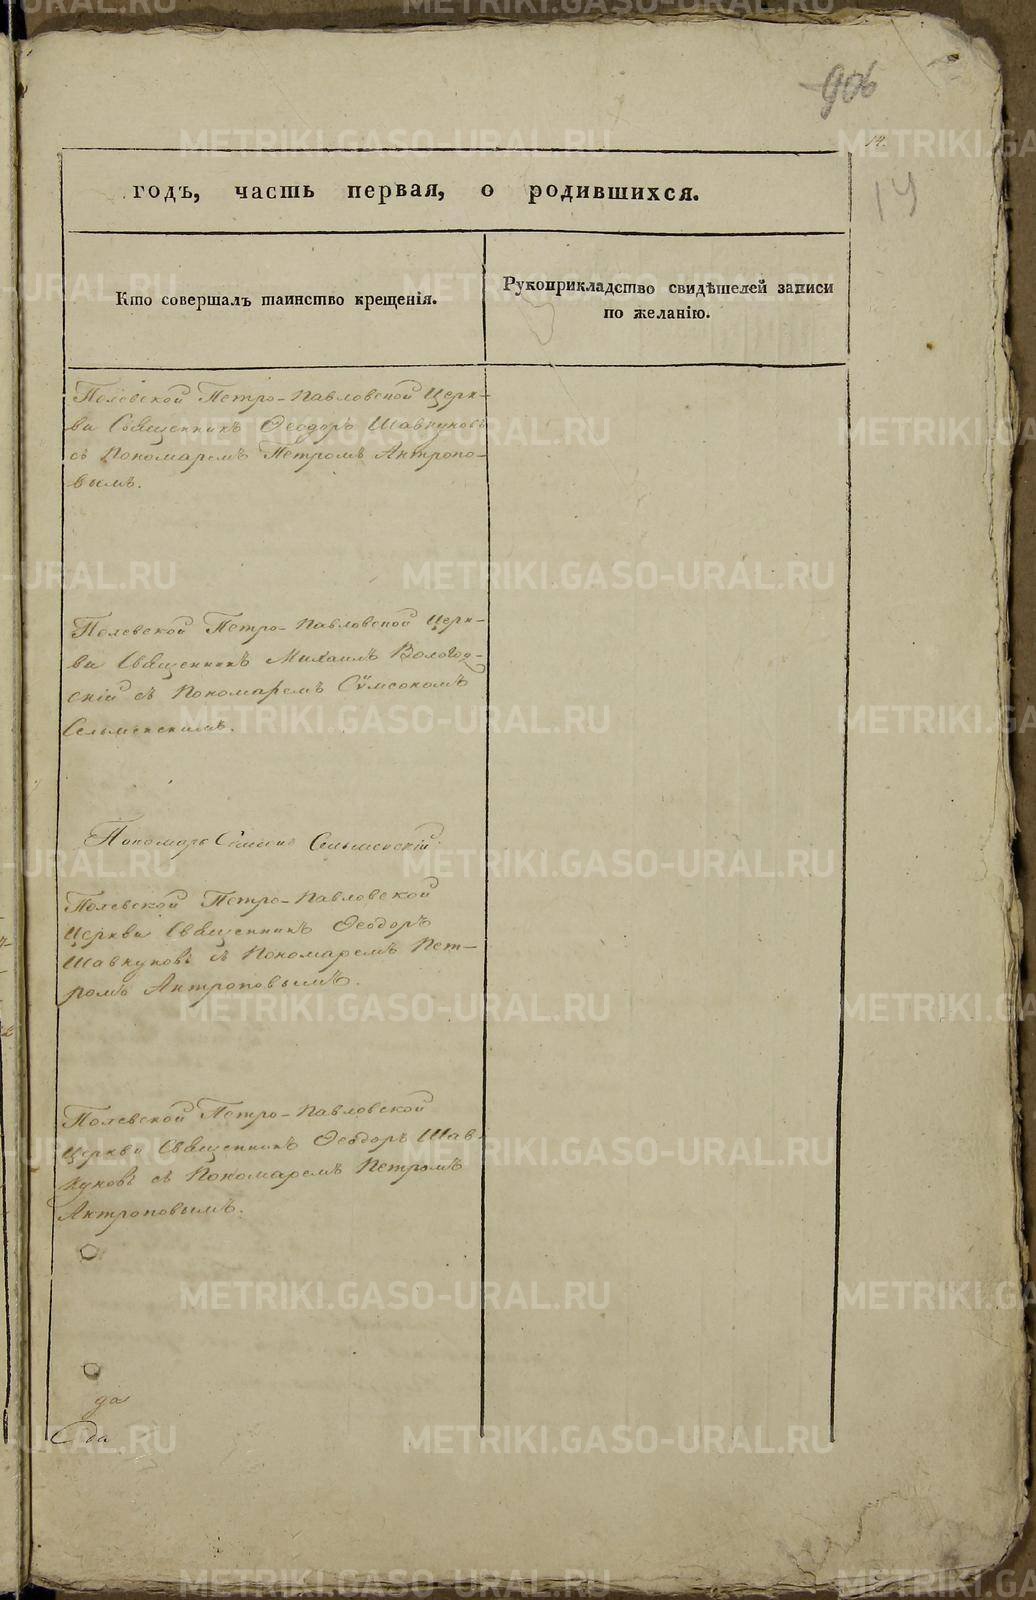 906
14.
14
годъ, часть первая, о родившихся.
Кто совершалъ таинство крещенія.
Рукоприкладство свидѣтелей записи
по желанію.
Полевской Петро-Павловской Церк-
ви Священникъ Ѳеодоръ Шавкуновъ
съ Пономаремъ Петромъ Антропо-
вымъ.
Полевской Петро-Павловской Церк-
ви Священникъ Михаилъ Вологод-
скій съ Пономаремъ Сѵмеономъ
Сельменскимъ.
Пономарь Сѵмеонъ Сельменскій
Полевской Петро-Павловской
Церкви Священникъ Ѳеодоръ
Шавкуновъ съ Пономаремъ Пет-
ромъ Антроповымъ.
Полевской Петро-Павловской
Церкви Священникъ Ѳеодоръ Шав-
куновъ съ Пономаремъ Петромъ
Антроповымъ.
да
METRIKI.GASO-URAL.RU